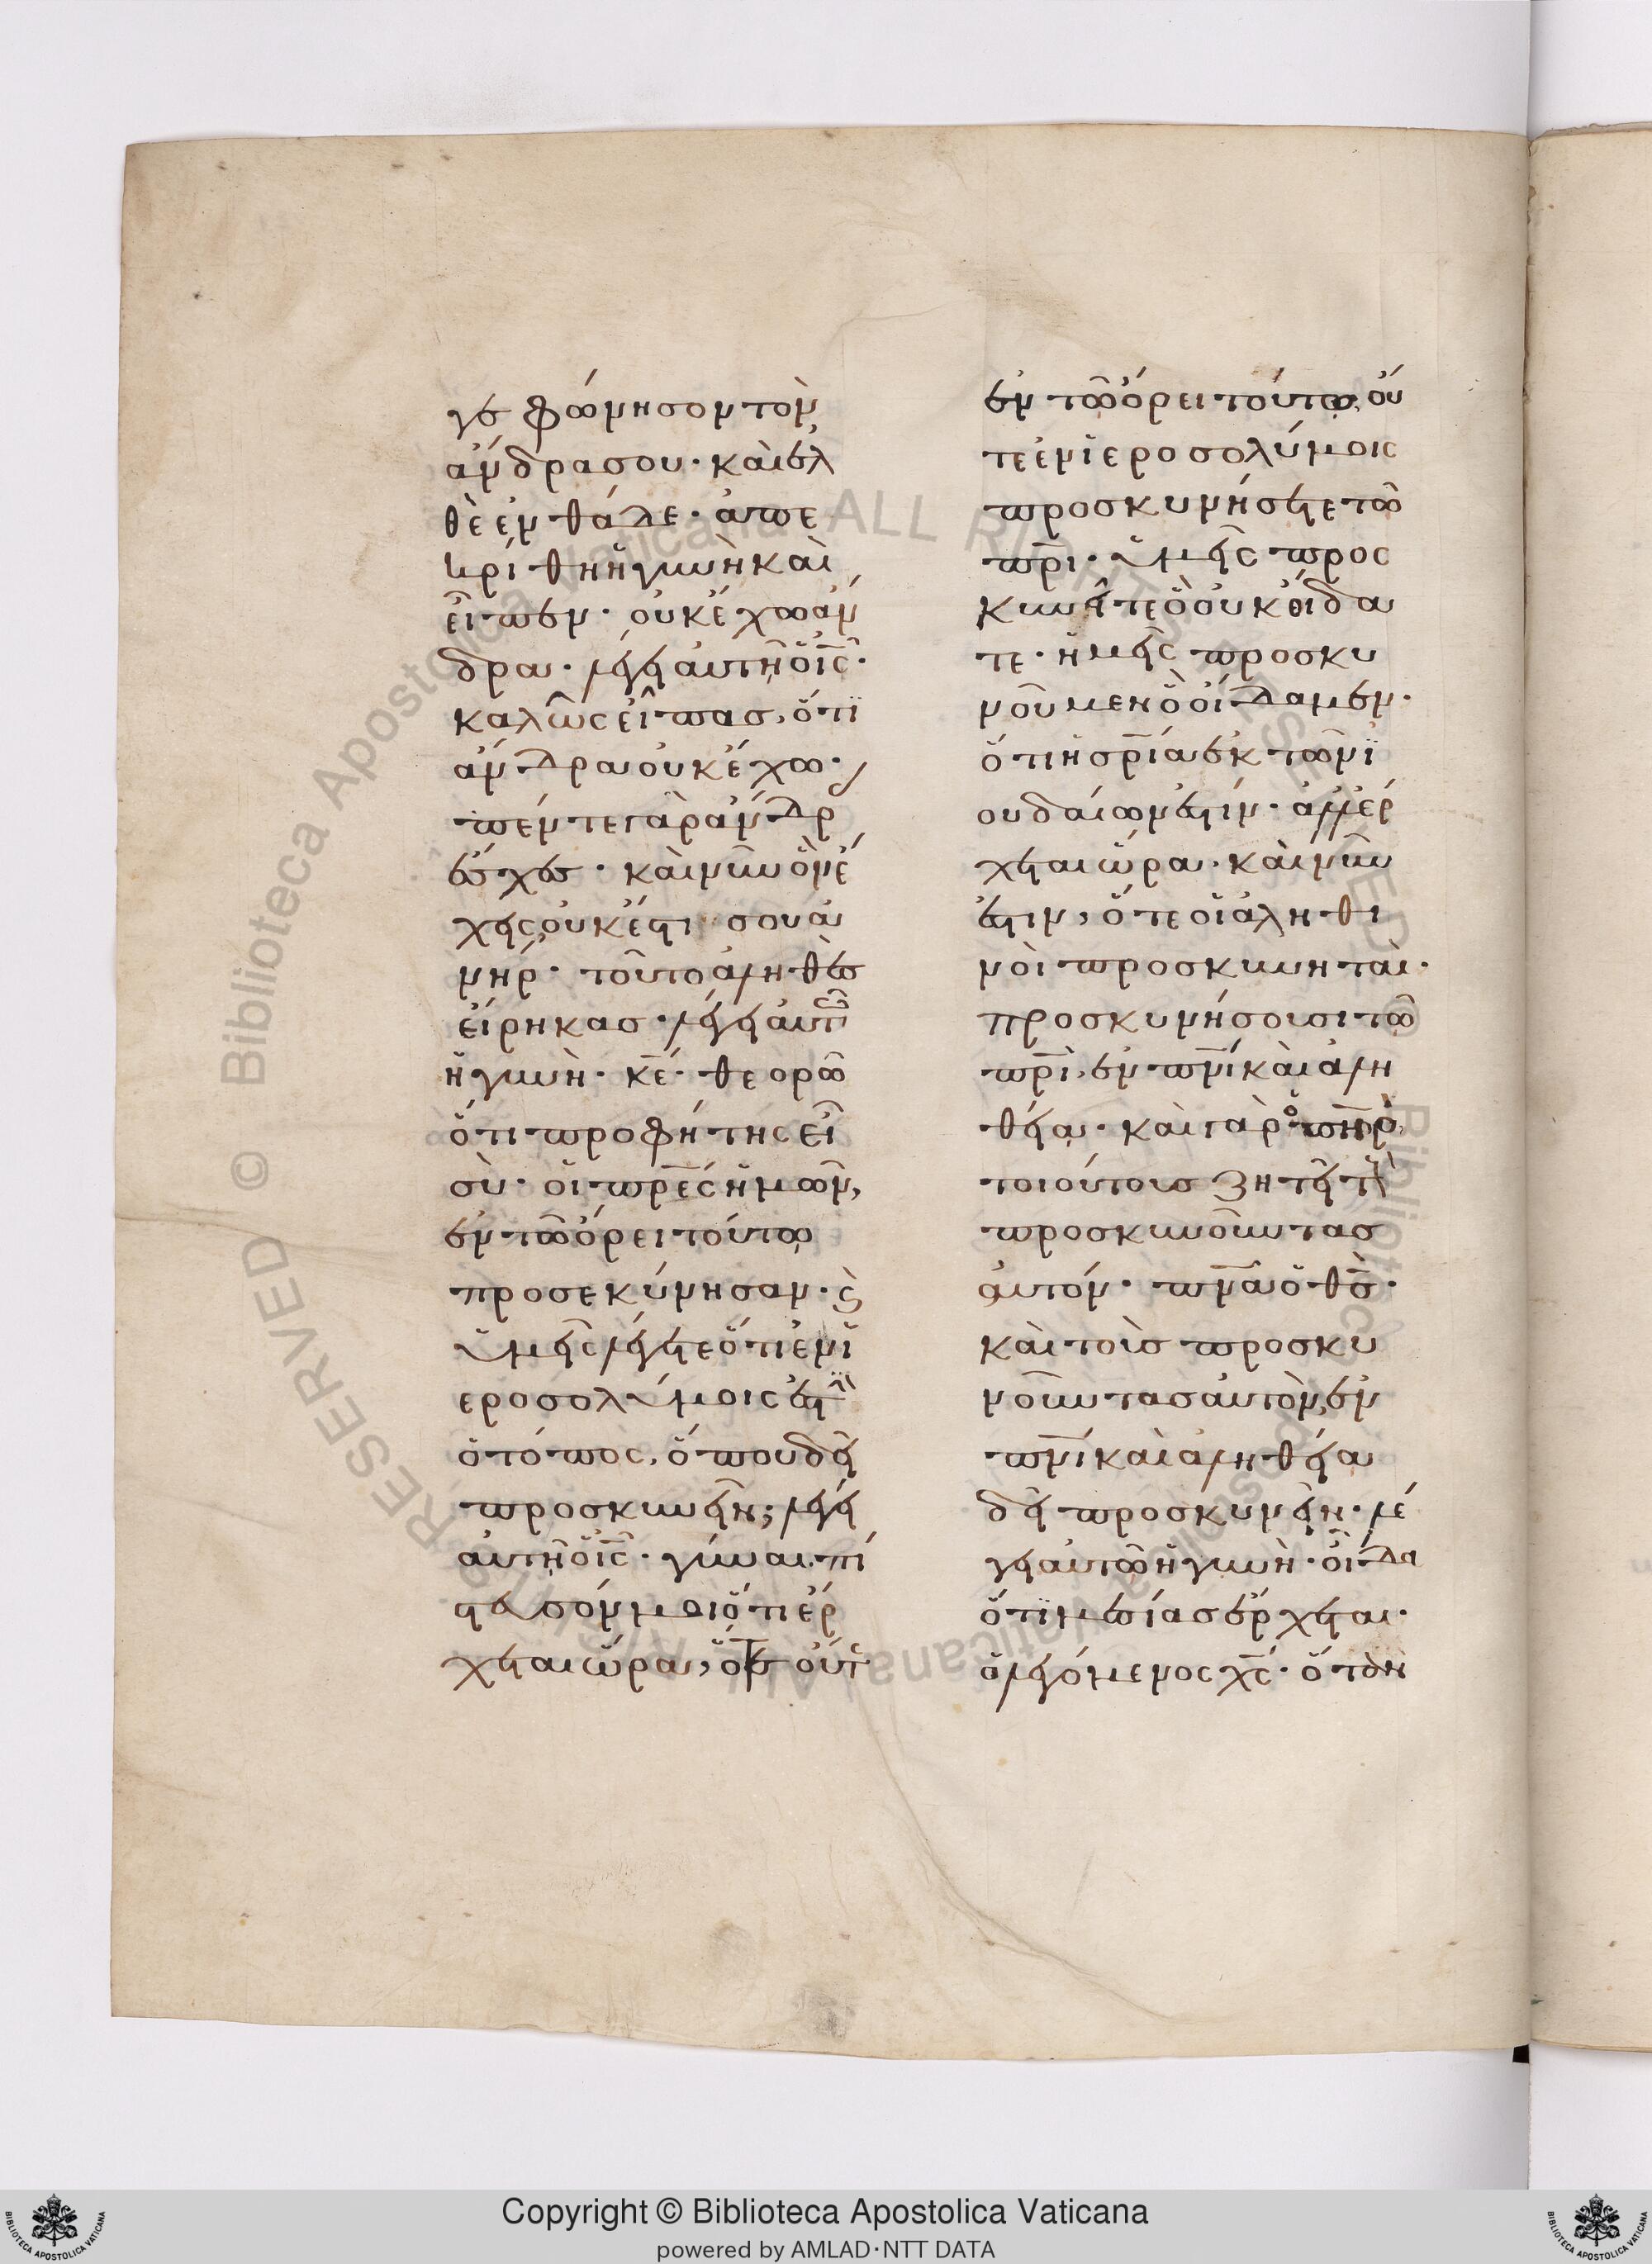 γε φώνησον τὸν
ἄνδρα σου· καὶ ἐλ
θὲ ἐνθάδε· ἀπε
κρίθη ἡ γυνὴ καὶ
εἶπεν· οὐκ ἔχω ἄν
δρα· λέγει αὐτῆ ὁ ἰς·
καλῶς εἶπας, ὅτι
ἄνδρα οὐκ ἔχω·
πέντε γὰρ ἄνδρ
ἔσχες· καὶ νῦν ὃν ἔ
χεις οὐκ ἔστι σου ἀ
νήρ· τοῦτο ἀληθὲς
εἴρηκας· λέγει αὐτῶ
ἡ γυνὴ· κε· θεορῶ
ὅτι προφήτης εἶ
σὺ· οἱ πρες ἡμῶν,
ἐν τῶ ὄρει τούτω
προσεκύνησαν· ϗ
ὑμεῖς λέγετε ὅτι ἐν ἱ
εροσολύμοις ἐστὶν
ὁ τόπος, ὅπου δεῖ
προσκυνεῖν; λέγει
αὐτῆ ὁ ἰς· γύναι πί
στευσόν μοι ὅτι ἔρ
χεται ὥρα, ὅτε οὔτε
ἐν τῶ ὄρει τούτω, οὔ
τε ἐν ἱεροσολύμοις
προσκυνήσετε τῶ
πρι· ὑμεῖς προς
κυνεῖτε ὃ οὐκ οἴδα
τε· ἡμεῖς προσκυ
νοῦμεν ὃ οἴδαμεν·
ὅτι ἡ σρία ἐκ τῶν ἰ
ουδαίων ἐστίν· ἀλλ ἔρ
χεται ὥρα· καὶ νῦν
ἐστιν, ὅτε οἱ ἀληθι
νοὶ προσκυνηταὶ·
προσκυνήσουσι τῶ
πρὶ, ἐν πνι καὶ ἀλη
θεία· καὶ γὰρ ὁ πηρ
τοιούτους ζητεῖ τοὺς
προσκυνοῦντας
αὐτόν· πνα ὁ θς·
καὶ τοὺς προσκυ
νοῦντας αὐτὸν, ἐν
πνι καὶ ἀληθεία
δεῖ προσκυνεῖν· λέ
γει αὐτῶ ἡ γυνὴ· οἶδα
ὅτι μεσίας ἔρχεται·
ὁ λεγόμενος χς· ὅταν
Copyright © Biblioteca Apostolica Vaticana
powered by AMLAD·NTT DATA